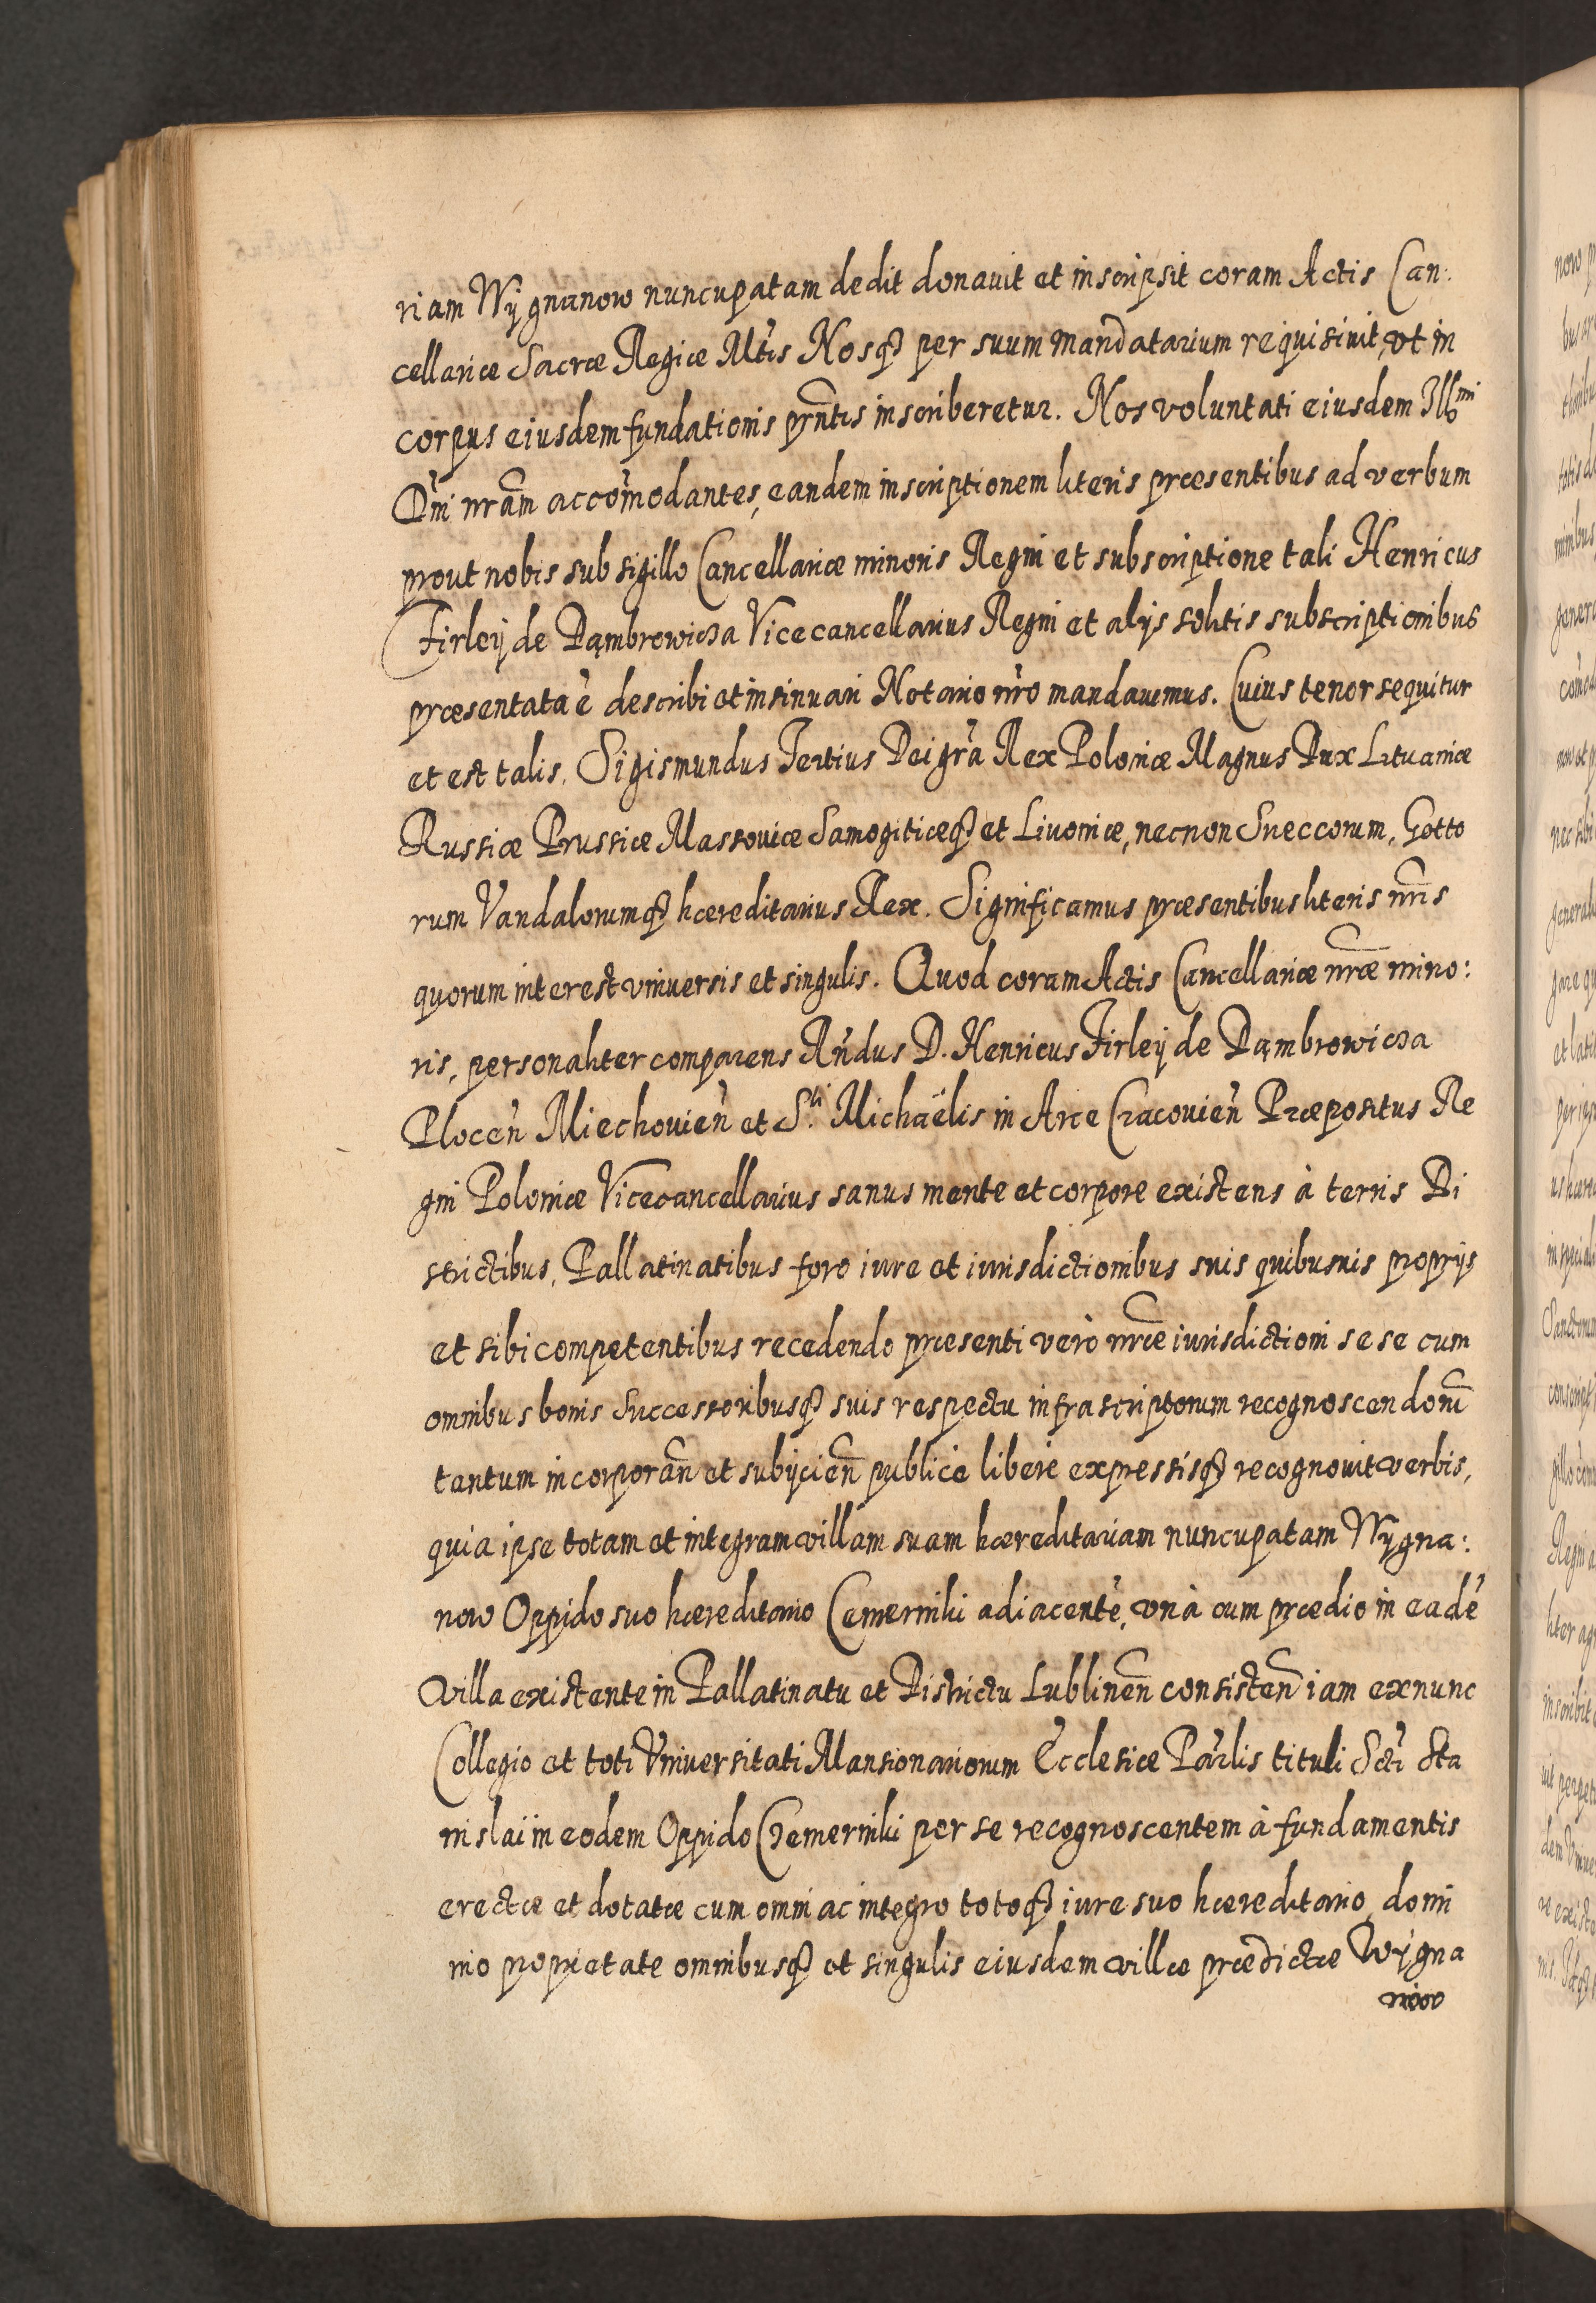 riam Wÿgnanow nuncupatam dedit donauit et inscripsit coram Actis Can:
cellariæ Sacræ Regiæ Mtis Nosq₃ per suum mandatarium requisiuit, vt in
corpus eiusdem fundationis prñtis inscriberetur. Nos voluntati eiusdem Illmi
Dñi nrãm accõmodantes, eandem inscriptionem literis præsentibus ad verbum
prout nobis sub sigillo Cancellariæ minoris Regni et subscriptione tali Henricus
Firleÿ de Dąmbrowicza Vicecancellarius Regni et alÿs solitis subscriptionibus
præsentata ẽ describi et insinuari Notario nr̃o mandauimus. Cuius tenor sequitur
et est talis. Sigismundus Tertius Dei gr̃a Rex Poloniæ Magnus Dux Lituaniæ
Russiæ Prussiæ Massouiæ Samogitiæq₃ et Liuoniæ, necnon Sueccorum, Gotto
rum Vandalorumq₃ hæreditarius Rex. Significamus præsentibus literis nr̃is
quorum interest vniuersis et singulis. Quod coram Actis Cancellariæ nr̃æ mino:
ris, personaliter comparens Rñdus D. Henricus Firleÿ de Dąmbrowicza
Plocen̄ Miechouien̄ et S.ti Michaëlis in Arce Cracouien̄ Præpositus Re
gni Poloniæ Vicecancellarius sanus mente et corpore existens à terris Di
strictibus, Pallatinatibus foro iure et iurisdictionibus suis quibusuis proprÿs
et sibi competentibus recedendo præsenti verò nr̃æ iurisdictioni sese cum
omnibus bonis Successoribusq₃ suis respectu infrascriptorum recognoscendorũ
tantum incorporan̄ et subÿcien̄ publicè liberè expressisq₃ recognouit verbis,
quia ipse totam et integram villam suam hæreditariam nuncupatam Wÿgna:
now Oppido suo hæreditario Cemerniki adiacentẽ, vnà cum prædio in eadẽ
villa existente in Pallatinatu et Districtu Lublinen̄ consisten̄ iam ex nunc
Collegio et toti Vniuersitati Mansionariorum Ecclesiæ Par̃lis tituli Scti Sta
nislai in eodem Oppido Czemerniki per se recognoscentem à fundamentis
erectæ et dotatæ cum omni ac integro totoq₃ iure suo hæreditario, domi
nio proprietate omnibusq₃ et singulis eiusdem villæ prædictæ Wÿgna
now